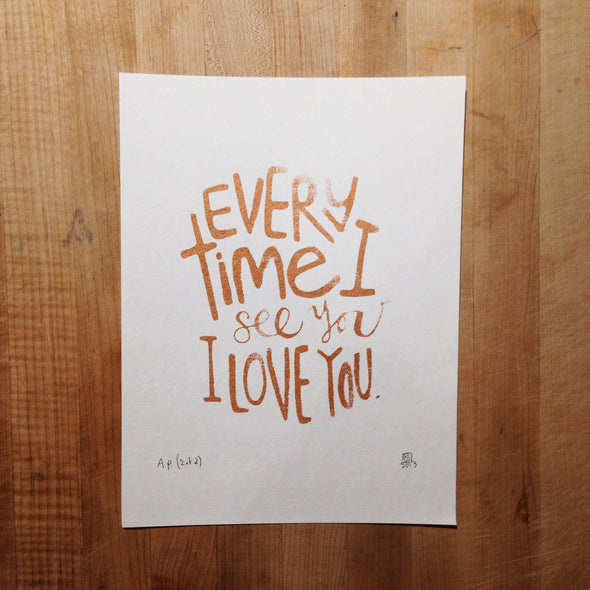 EVERY
time I
see you
I LOVE YOU.
A.p. (2 of 2)